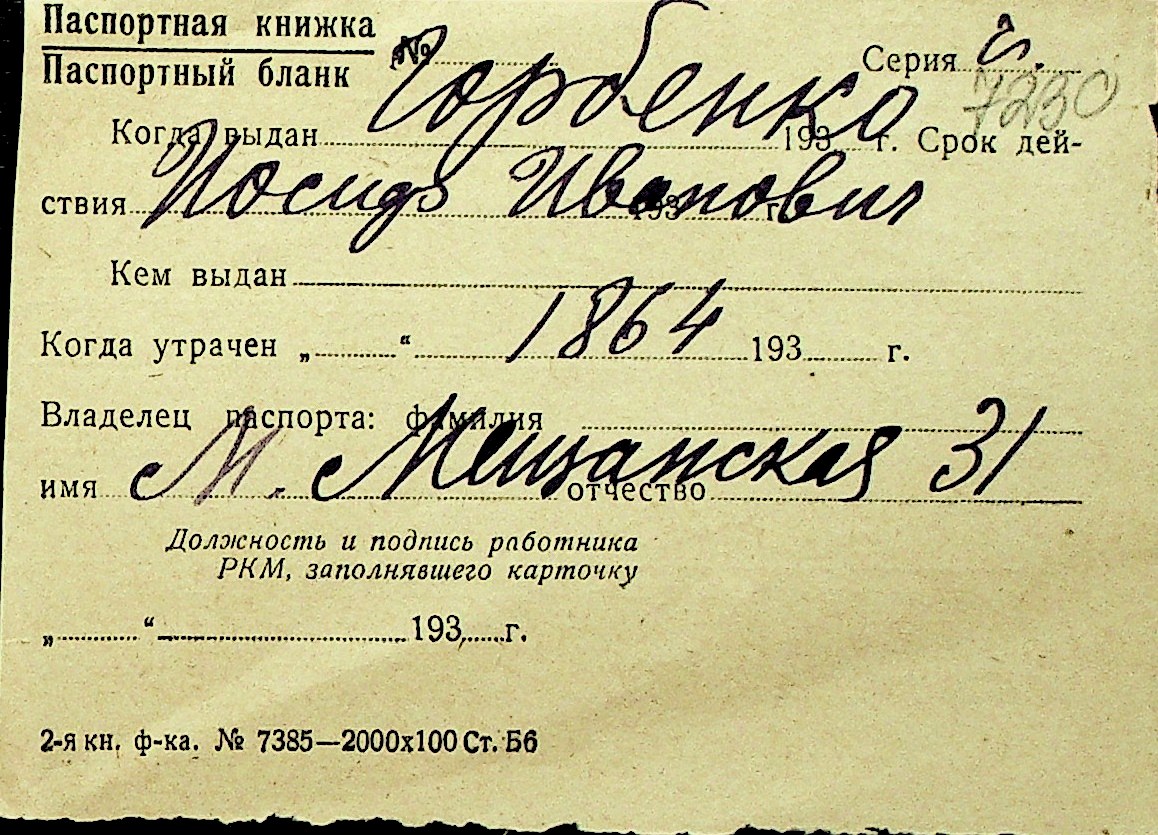 Паспортная книжка
Паспортный бланк
№
Серия
7230
Горбенко
Когда выдан 193 г. Срок дей-
Иосиф Иванович
ствия 193 г.
Кем выдан
1864
Когда утрачен „ “ 193 г.
Владелец паспорта: фамилия
М. Мещанская 31
имя отчество
Должность и подпись работника
РКМ, заполнявшего карточку
„ “ 193 г.
2-я кн. ф-ка. № 7385—2000х100 Ст. Б6